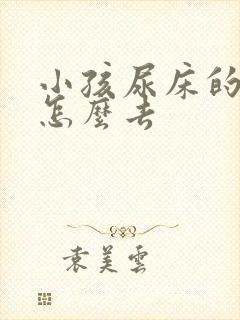 小孩尿床的
怎麼去
袁美雲